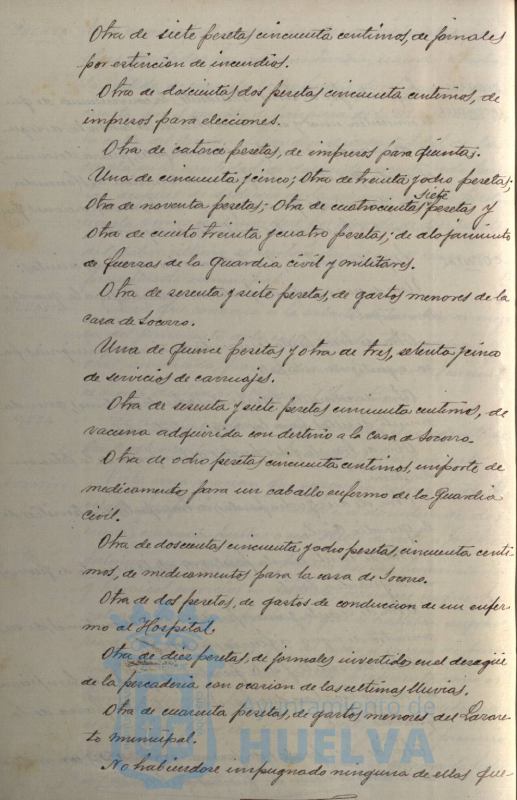 Otra de siete pesetas cincuenta centimos, de jornales
por estincion de incendios.
Otra de doscientas dos pesetas cincuenta centimos, de
impresos para elecciones.
Otra de catorce pesetas, de impresos para quintas.
Una de cincuenta y cinco; Otra de treinta y ocho pesetas;
Otra de noventa pesetas; Otra de cuatrocientas siete pesetas y
otra de ciento treinta y cuatro pesetas; de alojamiento
de fuerzas de la Guardia civil y militares.
Otra de sesenta y siete pesetas, de gastos menores de la
casa de Socorro.
Una de quince pesetas y otra de tres, setenta y cinco
de servicios de carruajes.
Otra de sesenta y siete pesetas cincuenta centimos, de
vacuna adquirida con destino a la casa de Socorro.
Otra de ocho pesetas cincuenta centimos, importe de
medicamentos para un caballo enfermo de la Guardia
civil.
Otra de doscientas cincuenta y ocho pesetas, cincuenta centi
mos, de medicamentos para la casa de Socorro.
Otra de dos pesetas, de gastos de conduccion de un enfer-
mo al Hospital.
Otra de diez pesetas, de jornales invertidos en el desagüe
de la pescaderia con ocasion de las ultimas lluvias.
Otra de cuarenta pesetas, de gastos menores del Lazare-
to municipal.
No habiendose impugnado ninguna de ellas fue-
Ayuntamiento de
HUELVA